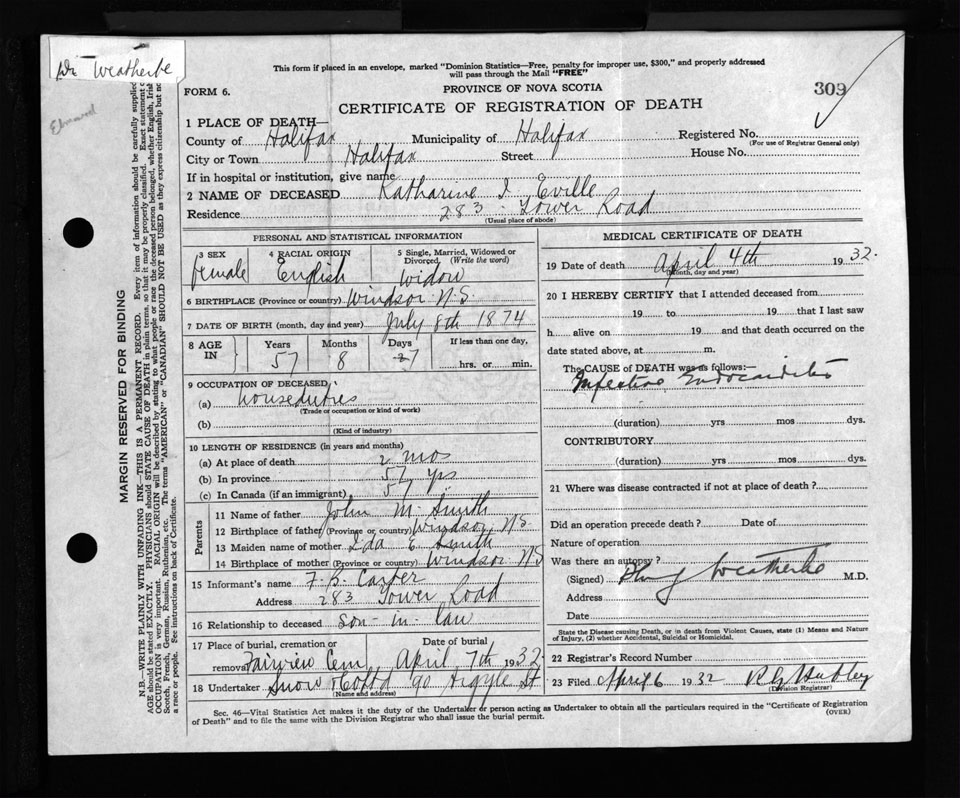 Dr Weatherbe
Elmwood
This form if placed in an envelope, marked "Dominion Statistics—Free, penalty for improper use, $300," and properly addressed
will pass through the Mail "FREE"
FORM 6.
PROVINCE OF NOVA SCOTIA
309
CERTIFICATE OF REGISTRATION OF DEATH
1 PLACE OF DEATH—
County of Halifax Municipality of Halifax Registered No.
(For use of Registrar General only)
City or Town Halifax Street House No.
If in hospital or institution, give name
2 NAME OF DECEASED Katharine I Eville
Residence 283 Tower Road
(Usual place of abode)
PERSONAL AND STATISTICAL INFORMATION
3 SEX 4 RACIAL ORIGIN 5 Single, Married, Widowed or
Divorced. (Write the word)
Female English Widow
6 BIRTHPLACE (Province or country) Windsor N.S
7 DATE OF BIRTH (month, day and year) July 8th 1874
8 AGE IN Years Months Days If less than one day,
57 8 27 hrs. or min.
9 OCCUPATION OF DECEASED
(a) housduties
(Trade or occupation or kind of work)
(b)
(Kind of industry)
10 LENGTH OF RESIDENCE (in years and months)
(a) At place of death 2 mos
(b) In province 57 yrs
(c) In Canada (if an immigrant)
Parents
11 Name of father John M Smith
12 Birthplace of father (Province or country) Windsor, N.S.
13 Maiden name of mother Ida E Smith
14 Birthplace of mother (Province or country) Windsor N.S
15 Informant's name
Address 283 Tower Road
16 Relationship to deceased son-in law
17 Place of burial, cremation or Date of burial
removal Fairview Cem, April 7th 1932
18 Undertaker Snow & Co Ltd 90 Argyle St
(Name and address)
MEDICAL CERTIFICATE OF DEATH
19 Date of death April 4th 1932.
(Month, day and year)
20 I HEREBY CERTIFY that I attended deceased from
19 to 19 that I last saw
h alive on 19 and that death occurred on the
date stated above, at m.
The CAUSE of DEATH was as follows:—
Infective Endocarditis
(duration) yrs mos dys.
CONTRIBUTORY
(duration) yrs mos dys.
21 Where was disease contracted if not at place of death?
Did an operation precede death? Date of
Nature of operation
Was there an autopsy?
(Signed) Weatherbe M.D.
Address
Date
State the Disease causing Death, or in death from Violent Causes, state (1) Means and Nature
of Injury, (2) whether Accidental, Suicidal or Homicidal.
22 Registrar's Record Number
23 Filed April 6 1932
(Division Registrar)
Sec. 46—Vital Statistics Act makes it the duty of the Undertaker or person acting as Undertaker to obtain all the particulars required in the "Certificate of Registration
of Death" and to file the same with the Division Registrar who shall issue the burial permit.
(OVER)
MARGIN RESERVED FOR BINDING
N.B.—WRITE PLAINLY WITH UNFADING INK—THIS IS A PERMANENT RECORD. Every item of information should be carefully supplied
AGE should be stated EXACTLY. PHYSICIANS should STATE CAUSE OF DEATH in plain terms, so that it may be properly classified. Exact statement
OCCUPATION is very important. RACIAL ORIGIN will be described by stating to what people or race the deceased person belonged, whether English, Irish
Scotch, French, German, Russian, Ruthenian, etc. The terms "AMERICAN" or "CANADIAN" SHOULD NOT BE USED as they express citizenship but not
a race or people. See instructions on back of Certificate.